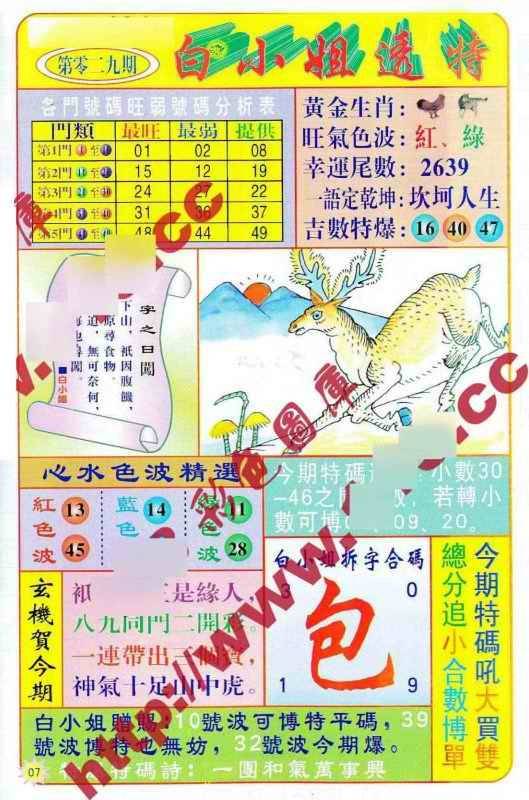 第零二九期
白小姐透特
各門號碼旺弱號碼分析表
門類 最旺 最弱 提供
第1門 至 01 02 08
第2門 至 15 12 19
第3門 至 24 27 22
第4門 至 31 36 37
第5門 至 48 44 49
黃金生肖:
旺氣色波: 紅、綠
幸運尾數: 2639
一語定乾坤: 坎坷人生
吉數特爆: 16 40 47
字之日闖
下山,祇因腹饑,
原尋食物。
迫,無可奈何,
■白小姐
心水色波精選
紅色波 13 45
藍色 14
色波 11 28
今期特碼 小數30
-46之 若轉小
數可博 09、20。
玄機賀今期
是緣人,
八九同門二開彩。
一連帶出三個寶,
神氣十足山中虎。
白小姐拆字合碼
3 0
包
1 9
今期特碼吼大買雙
總分追小合數博單
白小姐贈賜:10號波可博特平碼,39
號波博特也無妨,32號波今期爆。
特碼詩: 一團和氣萬事興
07
http://www.
彩色圖庫
.cc